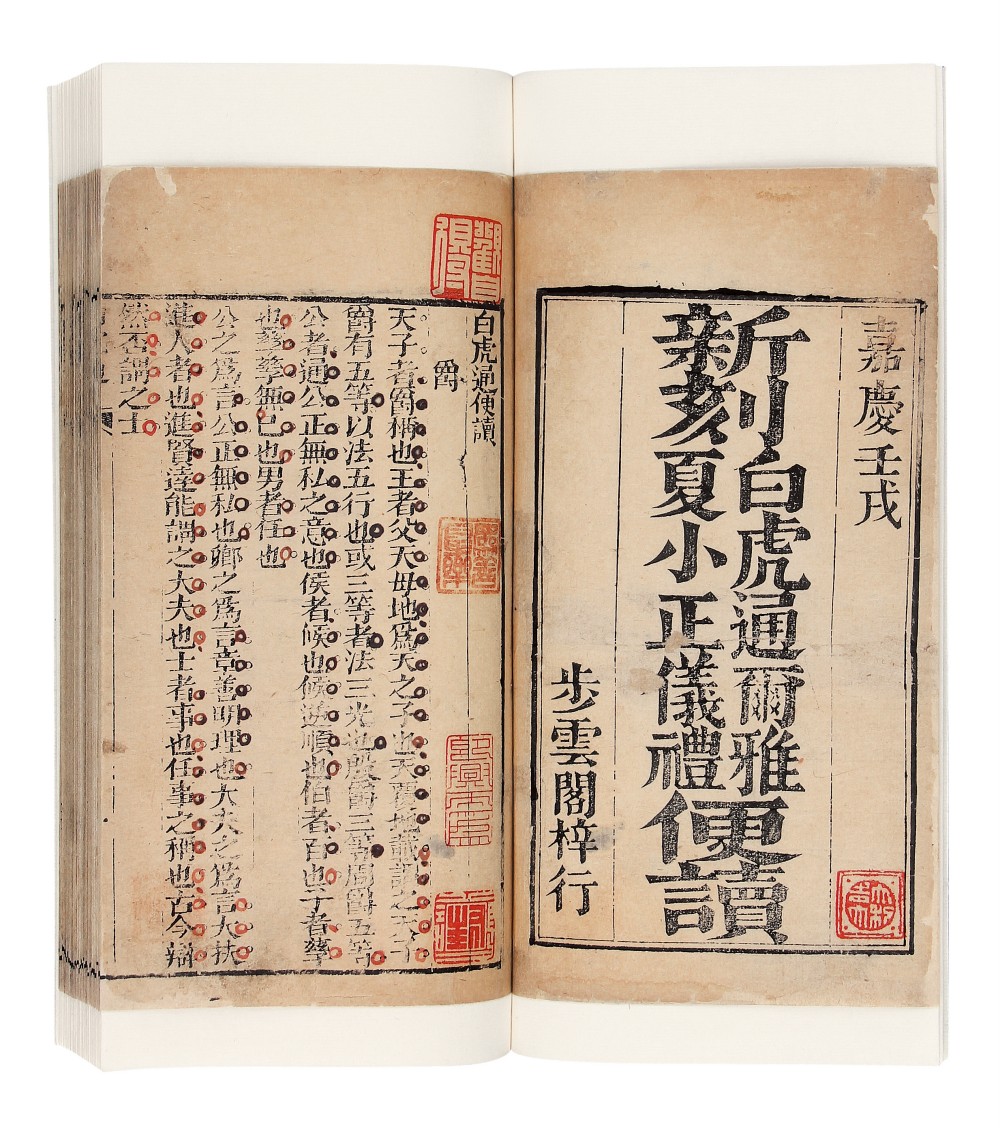 嘉慶壬戌
新刻
白虎通爾雅
夏小正儀禮
便讀
步雲閣梓行
白虎通便讀
爵
天子者爵稱也王者父天母地爲天之子也天覆地載謂之天子
爵有五等以法五行也或三等者法三光也殷爵三等周爵五等
公者通公正無私之意也侯者候也候逆順也伯者百也子者孳
也孳孳無已也男者任也
公之爲言公正無私也卿之爲言章善明理也大夫之爲言大扶
進人者也進賢達能謂之大夫也士者事也任事之稱也古今辯
然否謂之士